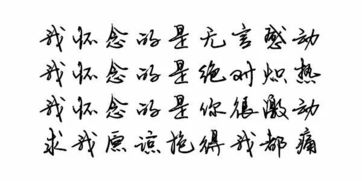 我怀念的是无言感动
我怀念的是绝对炽热
我怀念的是你很激动
求我原谅抱得我都痛